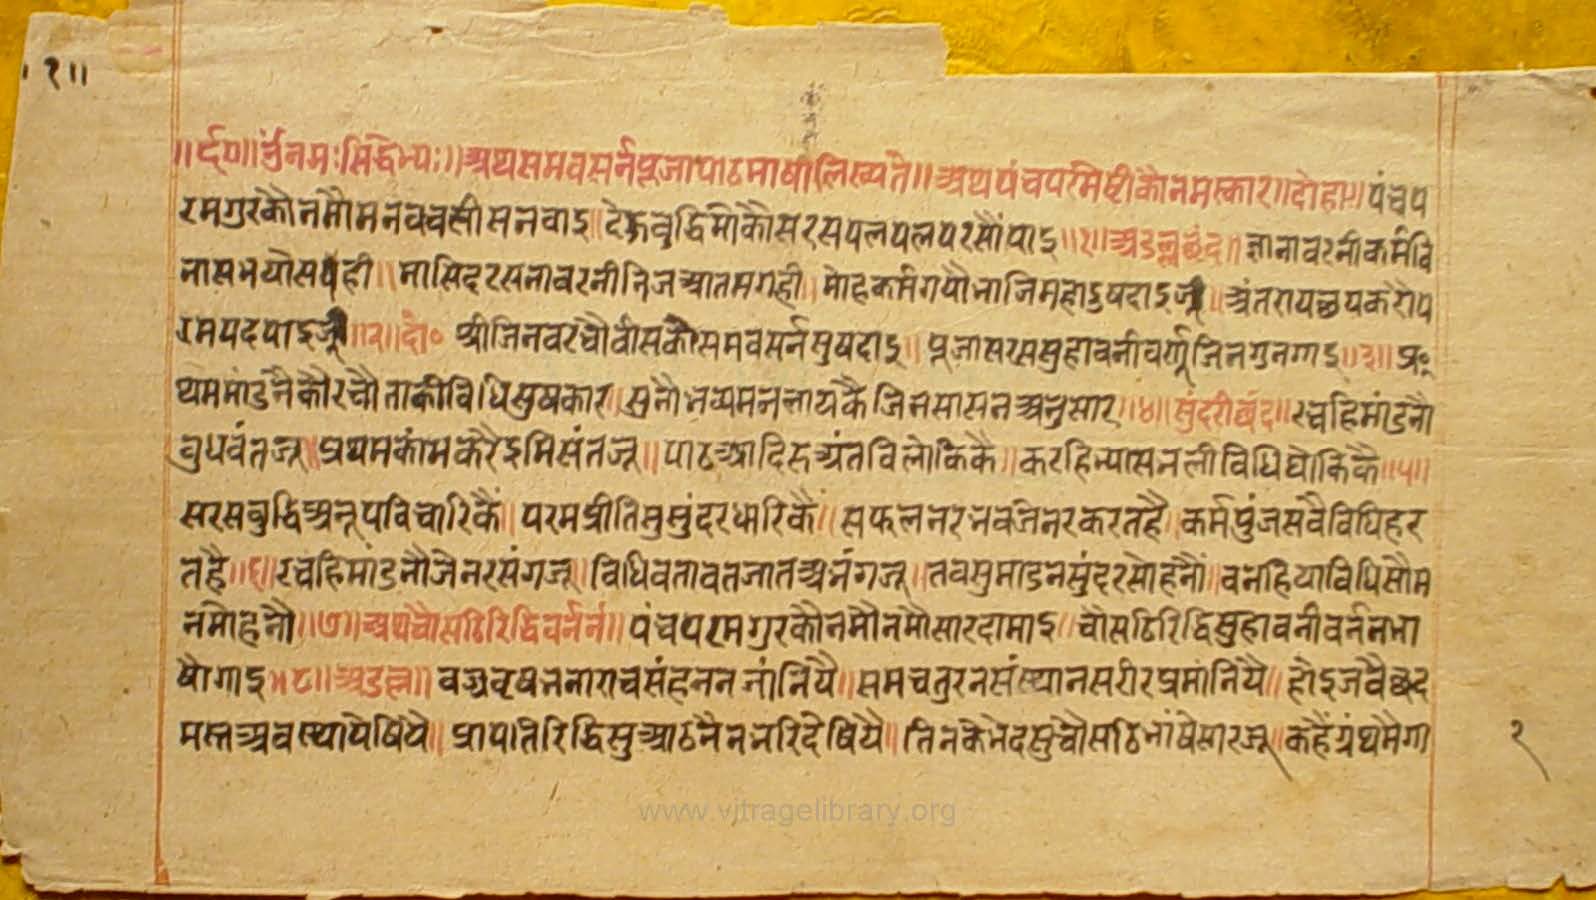 १॥
॥र्द०॥ र्उनमःसिद्धेभ्यः॥ अथसमवसर्नपूजापाठभाषालिख्यते॥ अथपंचपरमेष्टीकौनमस्कार॥ दोहा॥ पंचप
रमगुरकौनमौमनवचसीसनवाइ॥ देऊबुद्धिमोकौसरसपलपलपरसौंपाइ॥१॥ अडल्लछंद॥ ज्ञानावरनीकर्मवि
नासभयौसबही॥ भासिदरसनावरनीनिजआतमगही॥ मोहकर्मगयौभाजिमहादुषदाइजू॥ अंतरायछयकरोप
रमपदपाइजू॥२॥ दो० श्रीजिनवरचौवीसकौसमवसर्नसुषदाइ॥ पूजासरससुहावनीवर्णूजिनगुनगाइ॥३॥ प्र
थममांडनैकौरचौताकीविधिसुषकार॥ सुनौभव्यमनलायकैजिनसासनअनुसार॥४॥ सुंदरीछंद॥ रचहिमांडनौ
बुधवंतजू॥ प्रथमकांमकरैइमिसंतजू॥ पाठआदिरुअंतविलोकिकै॥ करहिन्यासनलीविधिधोकिकै॥५॥
सरसबुद्धिअनूपविचारिकैं॥ परमप्रीतिसुसुंदरधारिकैं॥ सफलनरभवजेनरकरतहै॥ कर्मपुंजसवैविधिहर
तहै॥६॥ रचहिमांडनौजेनरसंगजू॥ विधिवतावतजातअनंगजू॥ तवसुमाडनसुंदरसोहनौं॥ वनहियाविधिसौम
नमोहनौ॥७॥ अथचौसठिरिद्धिवर्ननं॥ पंचपरमगुरकौनमौनमौसारदामाइ॥ चौसठिरिद्धिसुहावनीवर्ननभा
षोगाइ॥८॥ अडल्ल॥ वज्रवृषभनाराचसंहननजांनियै॥ समचतुरनसंस्थानसरीरप्रमांनियै॥ होइजवैछद
मस्तअवस्थापेषियै॥ प्रापतिरिद्धिसुआठनैननरिदेषियै॥ तिनकेभेदसुचौसठिभांषेसारजू॥ कहैंग्रंथमैगा
१
www.vitragelibrary.org